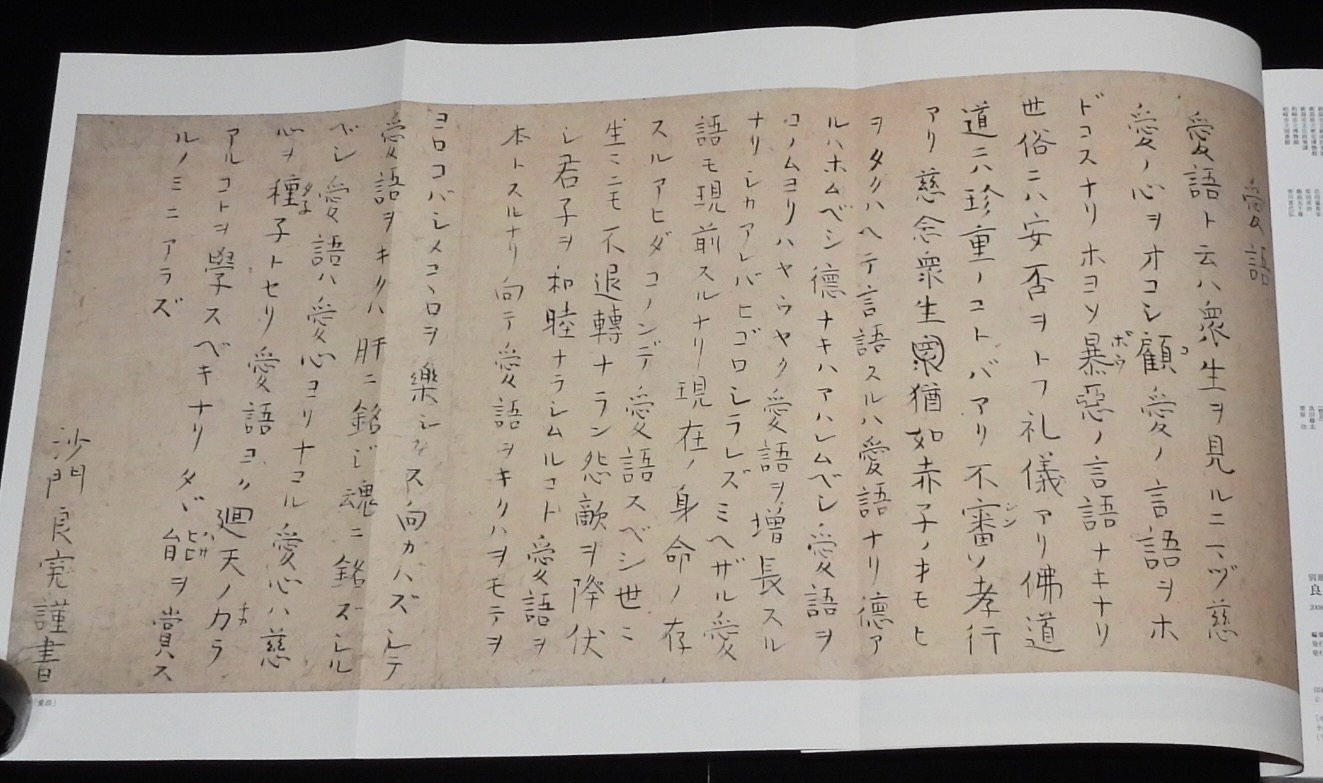 愛語
愛語ト云ハ衆生ヲ見ルニマヅ慈
愛ノ心ヲオコシ顧愛ノ言語ヲホ
コ
ドコスナリホヨソ暴惡ノ言語ナキナリ
ボウ
世俗ニハ安否ヲトフ礼儀アリ佛道
道ニハ珍重ノコトバアリ不審ノ孝行
シン
アリ慈念衆生猶如赤子ノオモヒ
ヲタクハヘテ言語スルハ愛語ナリ德ア
ルハホムベシ德ナキハアハレムベシ愛語ヲ
コノムヨリハヤウヤク愛語ヲ增長スル
ナリシカアレバヒゴロシラレズミヘザル愛
語モ現前スルナリ現在ノ身命ノ存
スルアヒダコノンデ愛語スベシ世〻
生〻ニモ不退轉ナラン怨敵ヲ降伏
シ君子ヲ和睦ナラシムルコト愛語ヲ
本トスルナリ向テ愛語ヲキクハヲモテヲ
ヨロコバシメコヽロヲ樂シクス向カハズシテ
愛語ヲキクハ肝ニ銘ジ魂ニ銘ズシル
ベシ愛語ハ愛心ヨリヲコル愛心ハ慈
心ヲ種子トセリ愛語ヨク廻天ノカラ
アルコトヲ學スベキナリタヾ能ヲ賞ス
ルノミニアラズ
沙門良寛謹書
(愛語)